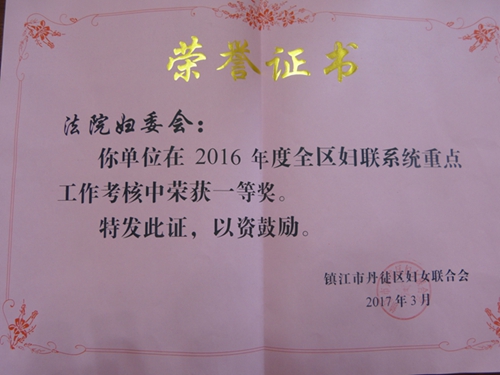 荣誉证书
法院妇委会：
你单位在 2016 年度全区妇联系统重点
工作考核中荣获一等奖。
特发此证，以资鼓励。
镇江市丹徒区妇女联合会
2017 年 3 月